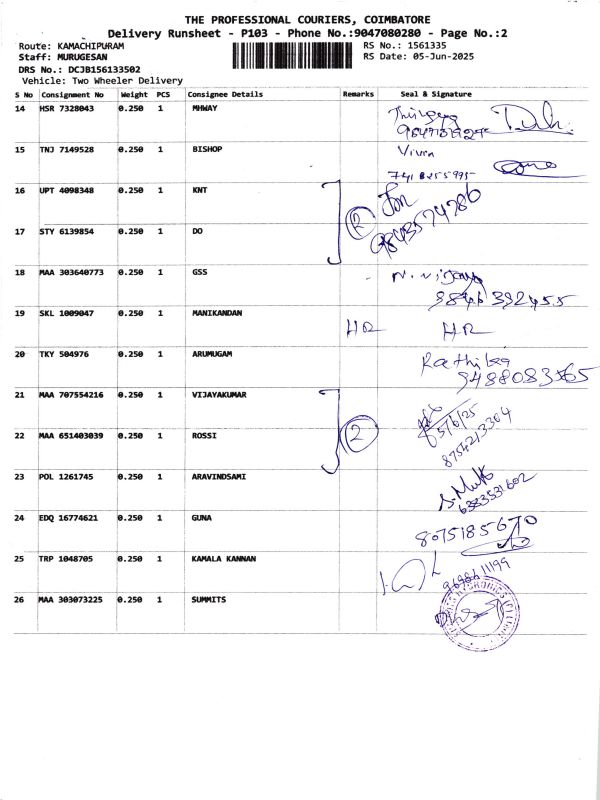 THE PROFESSIONAL COURIERS, COIMBATORE
Delivery Runsheet - P103 - Phone No.:9047080280 - Page No.:2
Route: KAMACHIPURAM RS No.: 1561335
Staff: MURUGESAN RS Date: 05-Jun-2025
DRS No.: DCJB156133502
Vehicle: Two Wheeler Delivery
S No Consignment No Weight PCS Consignee Details Remarks Seal & Signature
14 HSR 7328043 0.250 1 MHWAY
15 TNJ 7149528 0.250 1 BISHOP
16 UPT 4098348 0.250 1 KNT
2
9843574786
17 STY 6139854 0.250 1 DO
18 MAA 303640773 0.250 1 GSS
19 SKL 1009047 0.250 1 MANIKANDAN
HR HR
20 TKY 504976 0.250 1 ARUMUGAM
9488083565
21 MAA 707554216 0.250 1 VIJAYAKUMAR
5/6/25
2
8754213304
22 MAA 651403039 0.250 1 ROSSI
23 POL 1261745 0.250 1 ARAVINDSAMI
6383531602
24 EDQ 16774621 0.250 1 GUNA
8075185670
25 TRP 1048705 0.250 1 KAMALA KANNAN
26 MAA 303073225 0.250 1 SUMMITS